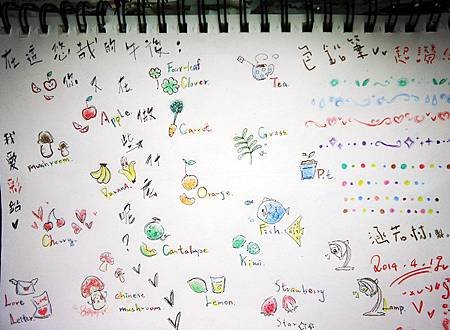 在這悠哉的午後：
你又在
做
些
什
麼
呢
？
我愛彩繪
色鉛筆
Four-leaf
Clover.
Tea.
Apple
Carrot
Grass
mushroom.
Banana
Orange.
P.t.
Cherry.
Cantalupe
Fish.
Kiwi.
2014.4.12
Love
Letter
Chinese
mushroom.
Lemon.
Strawberry
Star
Lamp.